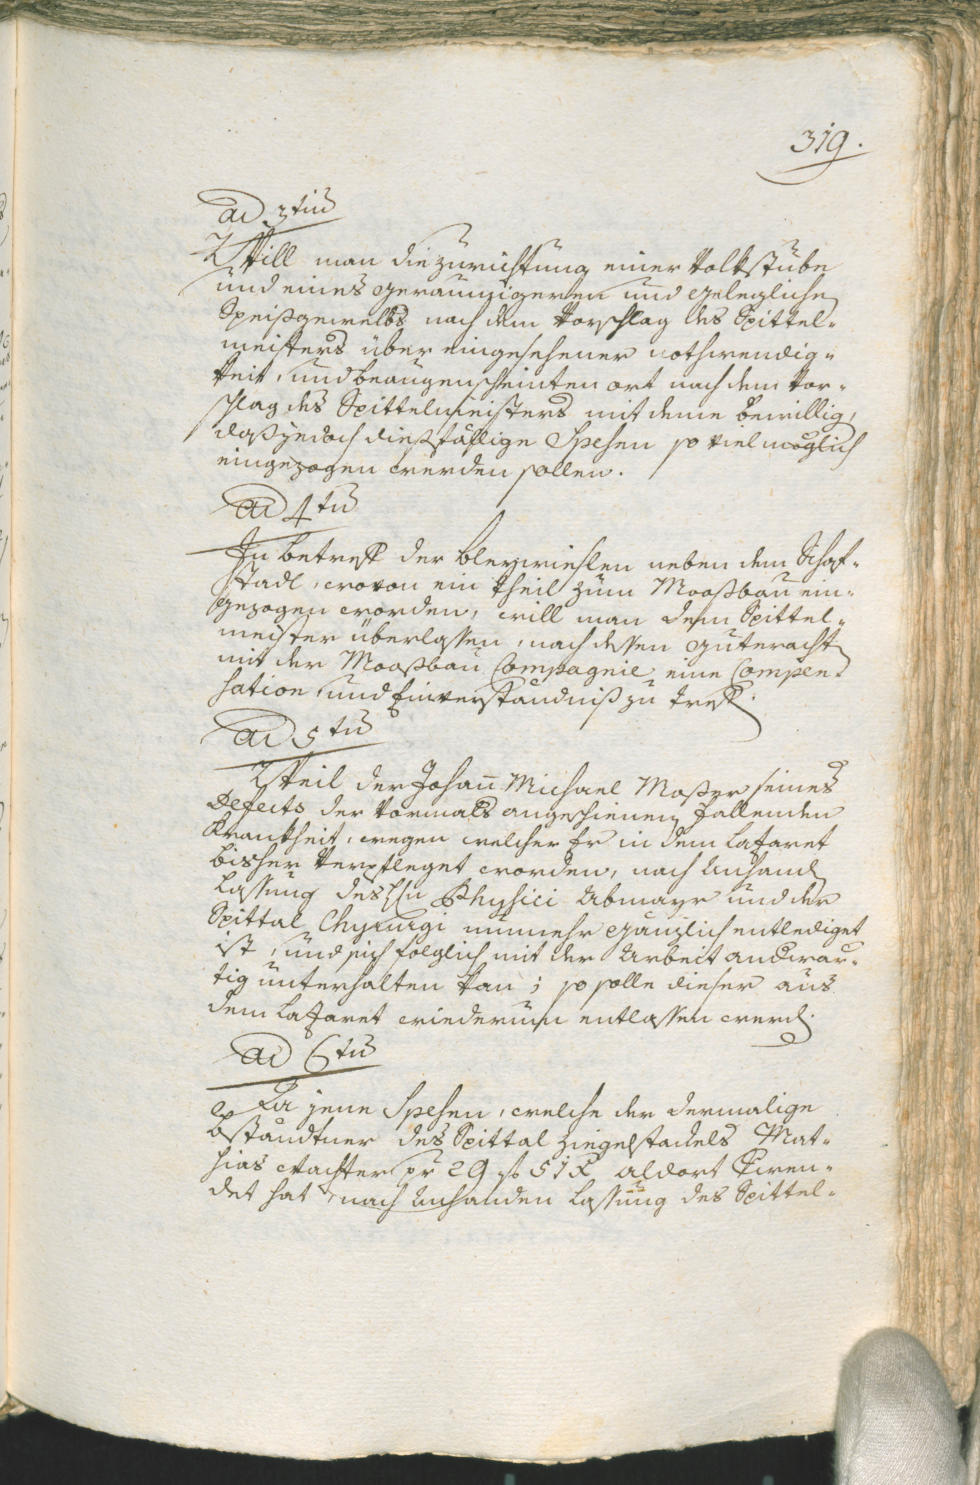 319.
ad 3tiu
Will man die zurichtung einer Volkstube
und eines geraumigeren und gelegliche
Speißgewelbs nach dem Vorschlag des Spittel-
meisters über eingesehener nothwendig-
keit, und beaugenscheinten ort nach dem Vor-
schlag des Spittelmeisters mit deme bewillig,
daß jedoch dießfällige Spesen so viel möglich
eingezogen werden sollen.
ad 4tu
In betreff der bleywiesen neben dem Schaf-
stadl, wovon ein theil zum Mooßbau ein-
gezogen worden, will man dem Spittel-
meister überlassen, nach dessen guteracht
mit der Mooßbau Compagnie eine Compen-
sation, und Einverständniß zu treff.
ad 5tu
Weil der Johañ Michael Moßer seines
Defects der Vormals angeschienen fallenden
Krankheit, wegen welcher Er in dem Lazaret
bisher Verpfleget worden, nach Anhand
lassung des Hn Physici Abmayr und der
Spittal Chyrurgi nunmehr gänzlich entlediget
ist, und sich folglich mit der Arbeit anderwär-
tig unterhalten kan; so solle dieser aus
dem Lazaret wiederum entlassen werd.
ad 6tu
Da jene Spesen, welche der dermalige
bständtner des Spittal Ziegelstadels Mat-
hias Wachter pr 29 f 51 x aldort
det hat, nach Anhanden lassung des Spittel-